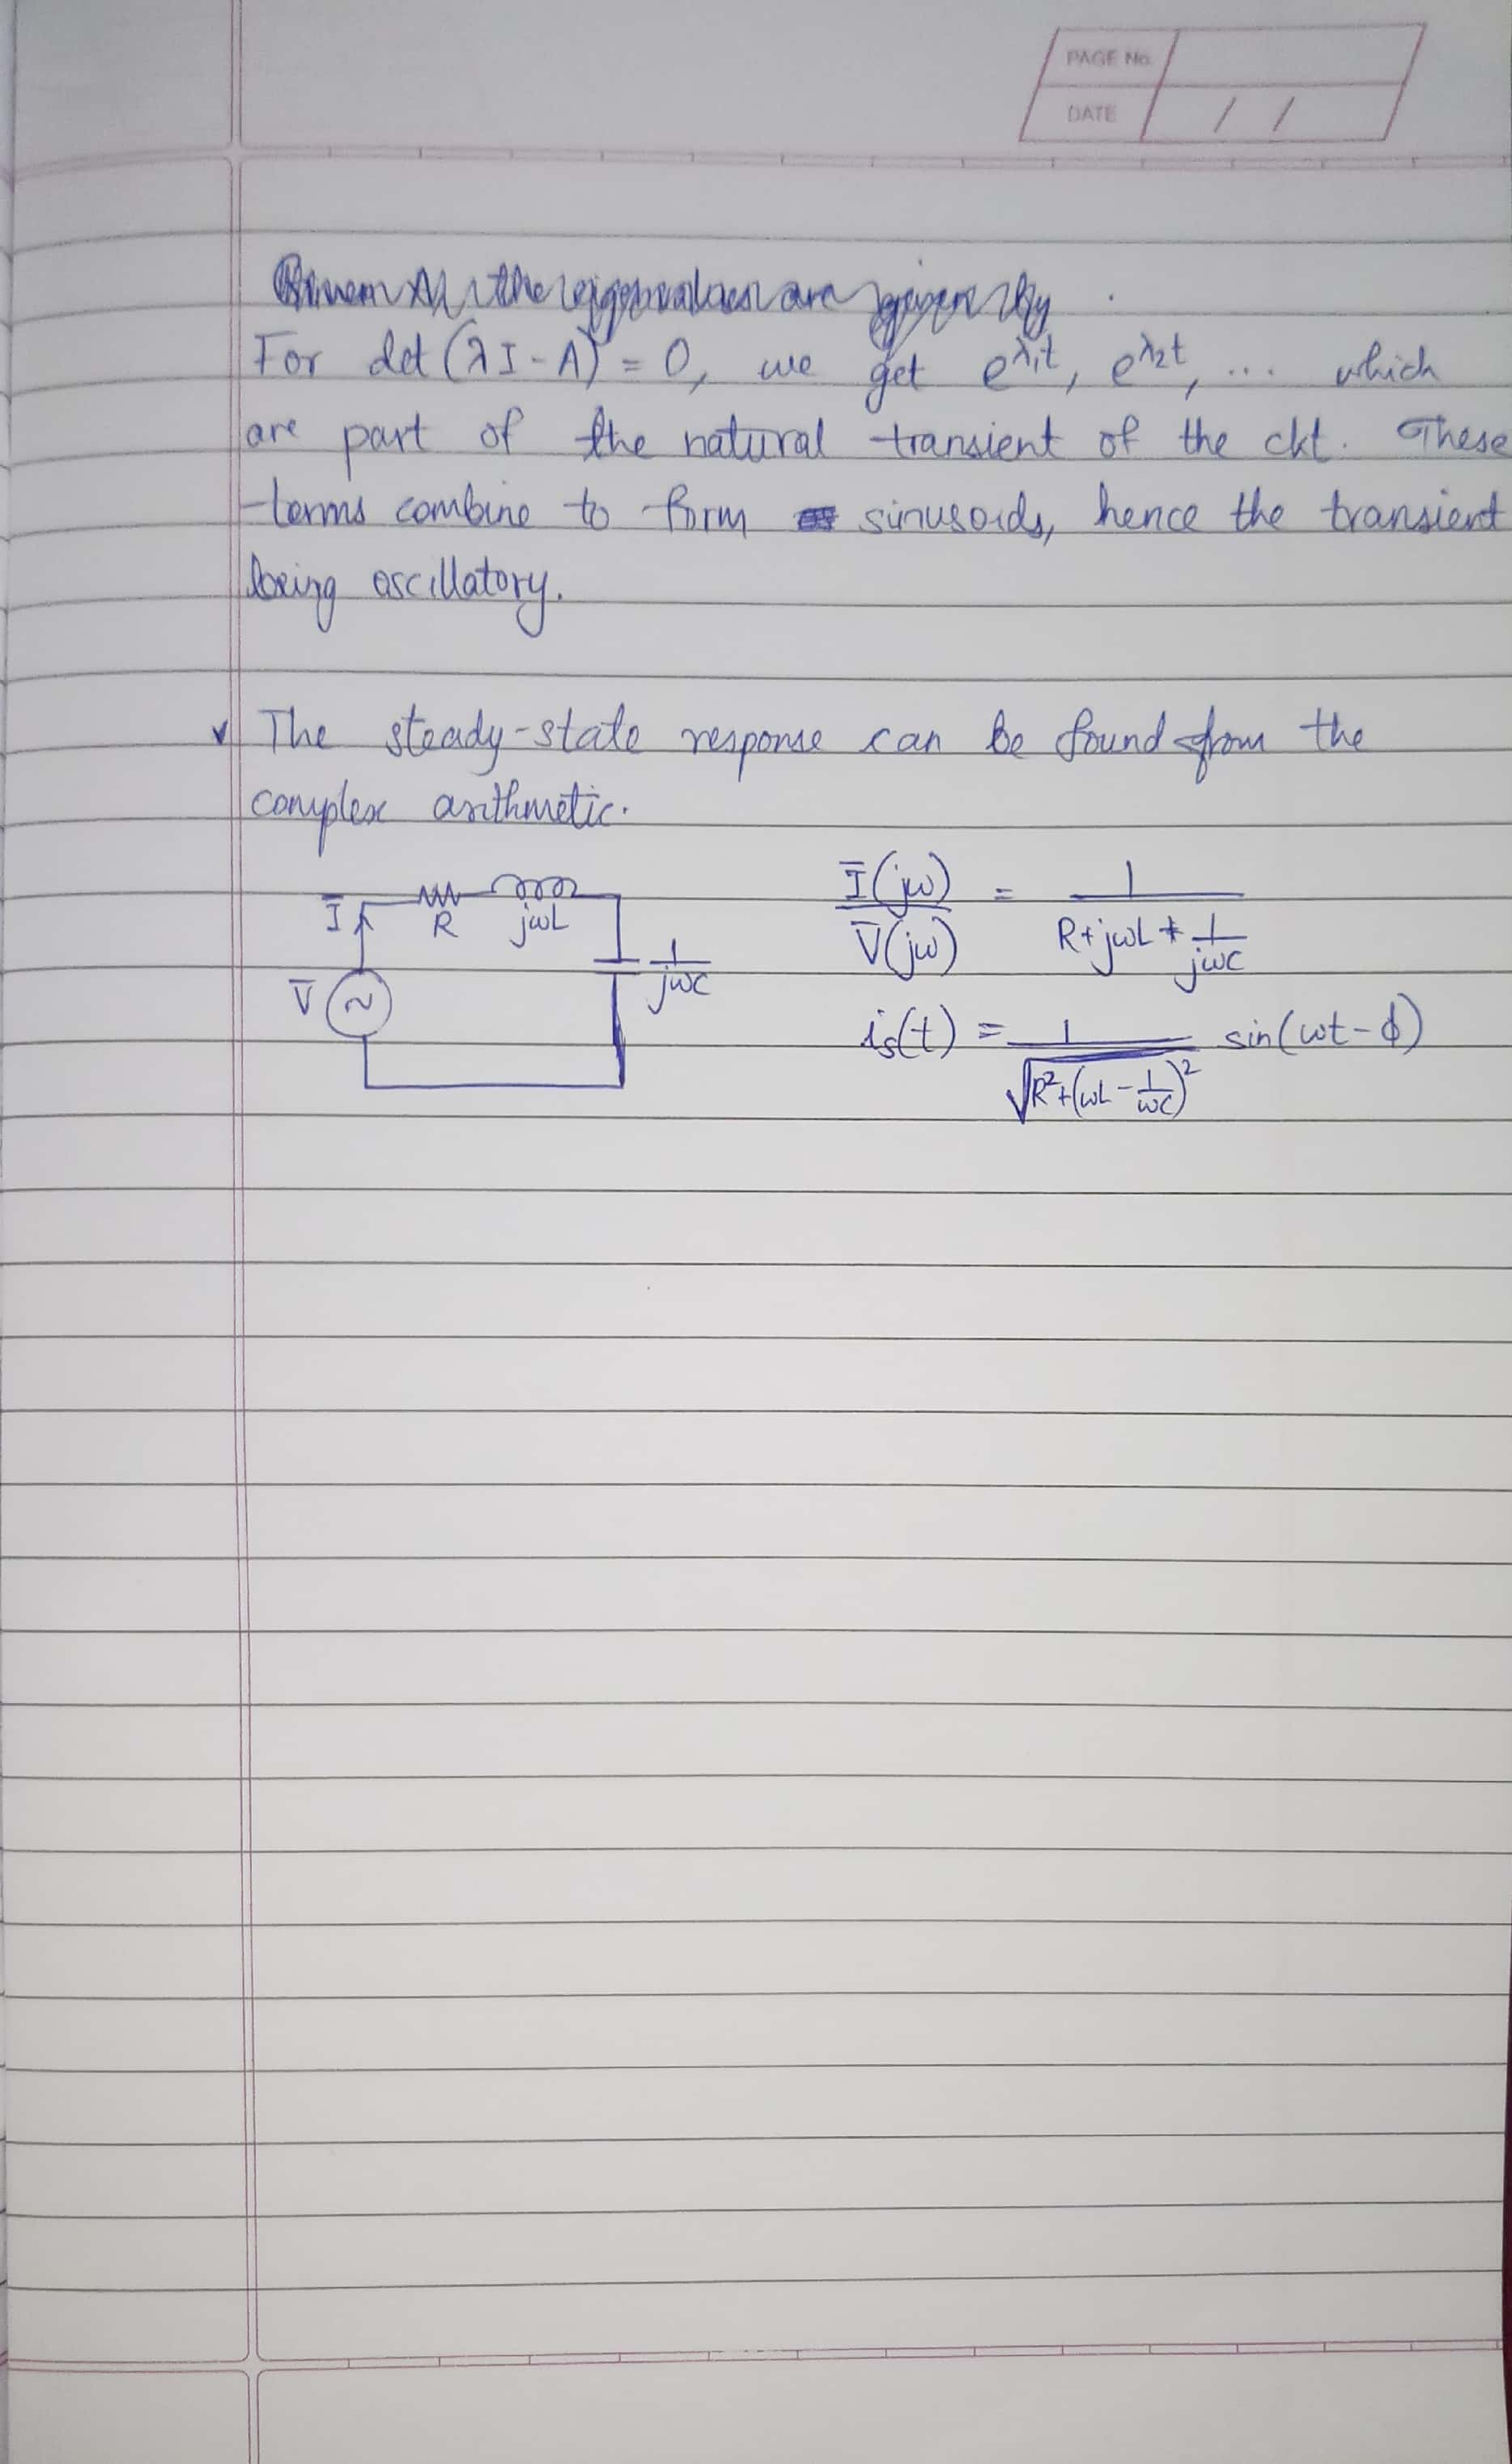 PAGE No.
DATE / /
For det (λI - A) = 0, we get e^λ₁t, e^λ₂t, ... which
are part of the natural transient of the ckt. These
terms combine to form sinusoids, hence the transient
being oscillatory.
✓ The steady-state response can be found from the
complex arithmetic.
Ī R jωL 1/jωC V̄ ~
Ī(jω)/V̄(jω) = 1/(R + jωL + 1/jωC)
is(t) = 1/√(R² + (ωL - 1/ωC)²) sin(ωt - ϕ)